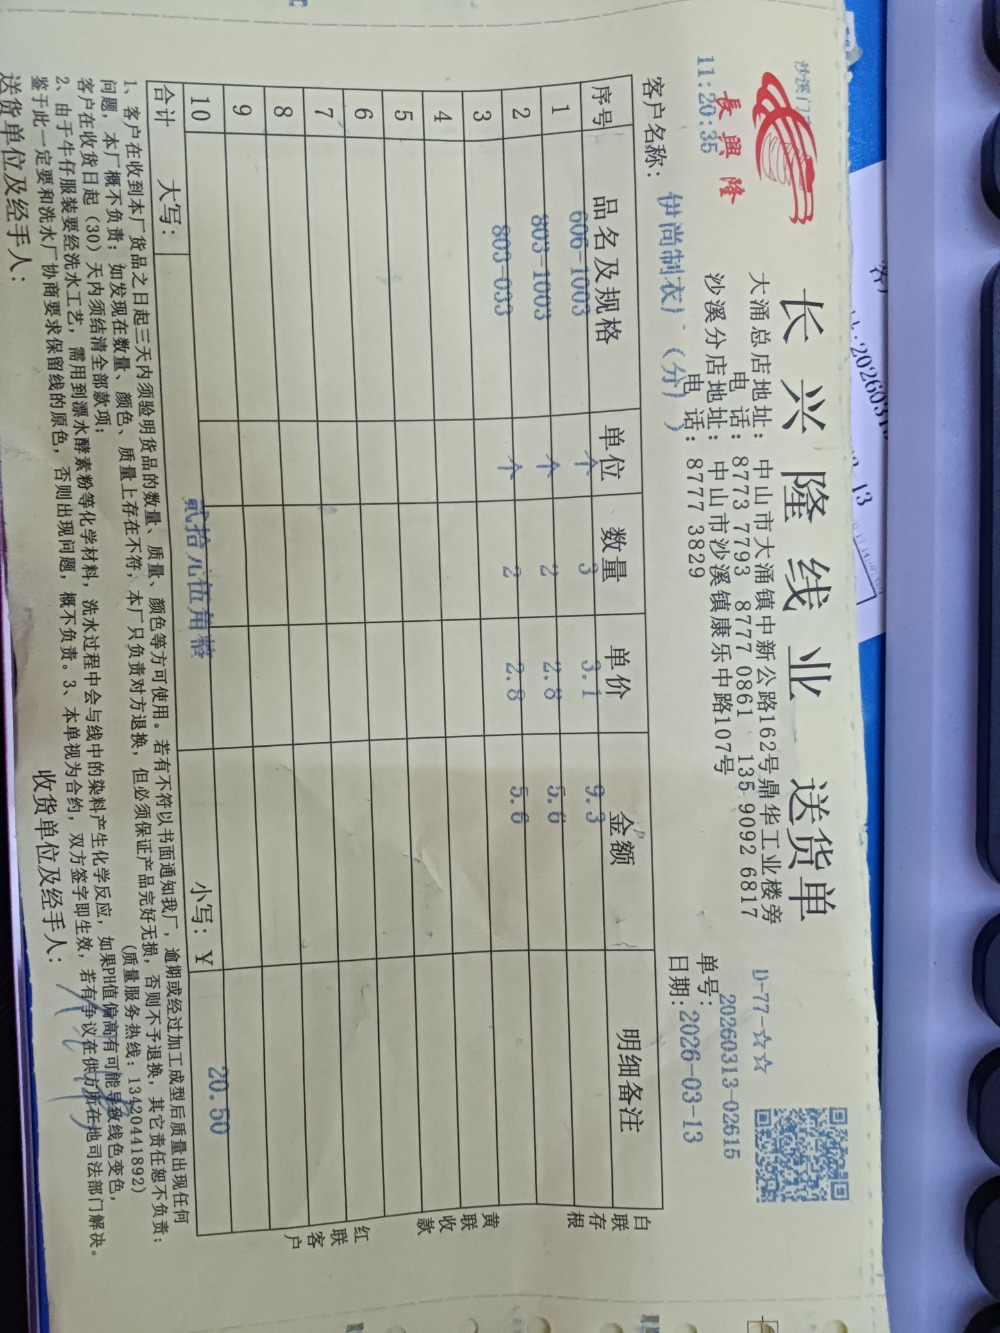 长兴隆线业 送货单
沙溪门
長興隆
11:20:35
大涌总店地址: 中山市大涌镇中新公路162号鼎华工业楼旁
电 话: 8773 7793 8777 0861 135 9092 6817
沙溪分店地址: 中山市沙溪镇康乐中路107号
电 话: 8777 3829
D-77-☆☆
单号: 20260313-02615
日期: 2026-03-13
客户名称: 伊尚制衣厂 (分厂)
序号 品名及规格 单位 数量 单价 金额 明细备注
1 606-1003 个 3 3.1 9.3
2 803-1003 个 2 2.8 5.6
3 803-033 个 2 2.8 5.6
4
5
6
7
8
9
10
合计 大写: 贰拾元伍角整 小写: ¥ 20.50
1、客户在收到本厂货品之日起三天内须验明货品的数量、质量、颜色等方可使用。若有不符以书面通知我厂，逾期或经过加工成型后质量出现任何
问题，本厂概不负责; 如发现在数量、颜色、质量上存在不符，本厂只负责对方退换，但必须保证产品完好无损，否则不予退换，其它责任恕不负责;
客户在收货日起 (30) 天内须结清全部款项; (质量服务热线: 13420441892)
2、由于牛仔服装要经洗水工艺，需用到漂水酵素粉等化学材料，洗水过程中会与线中的染料产生化学反应，如果PH值偏高有可能导致线色变色，
鉴于此一定要和洗水厂协商要求保留线的原色，否则出现问题，概不负责。3、本单视为合约，双方签字即生效，若有争议在供方所在地司法部门解决。
送货单位及经手人: 收货单位及经手人:
白联存根
黄联收款
红联客户